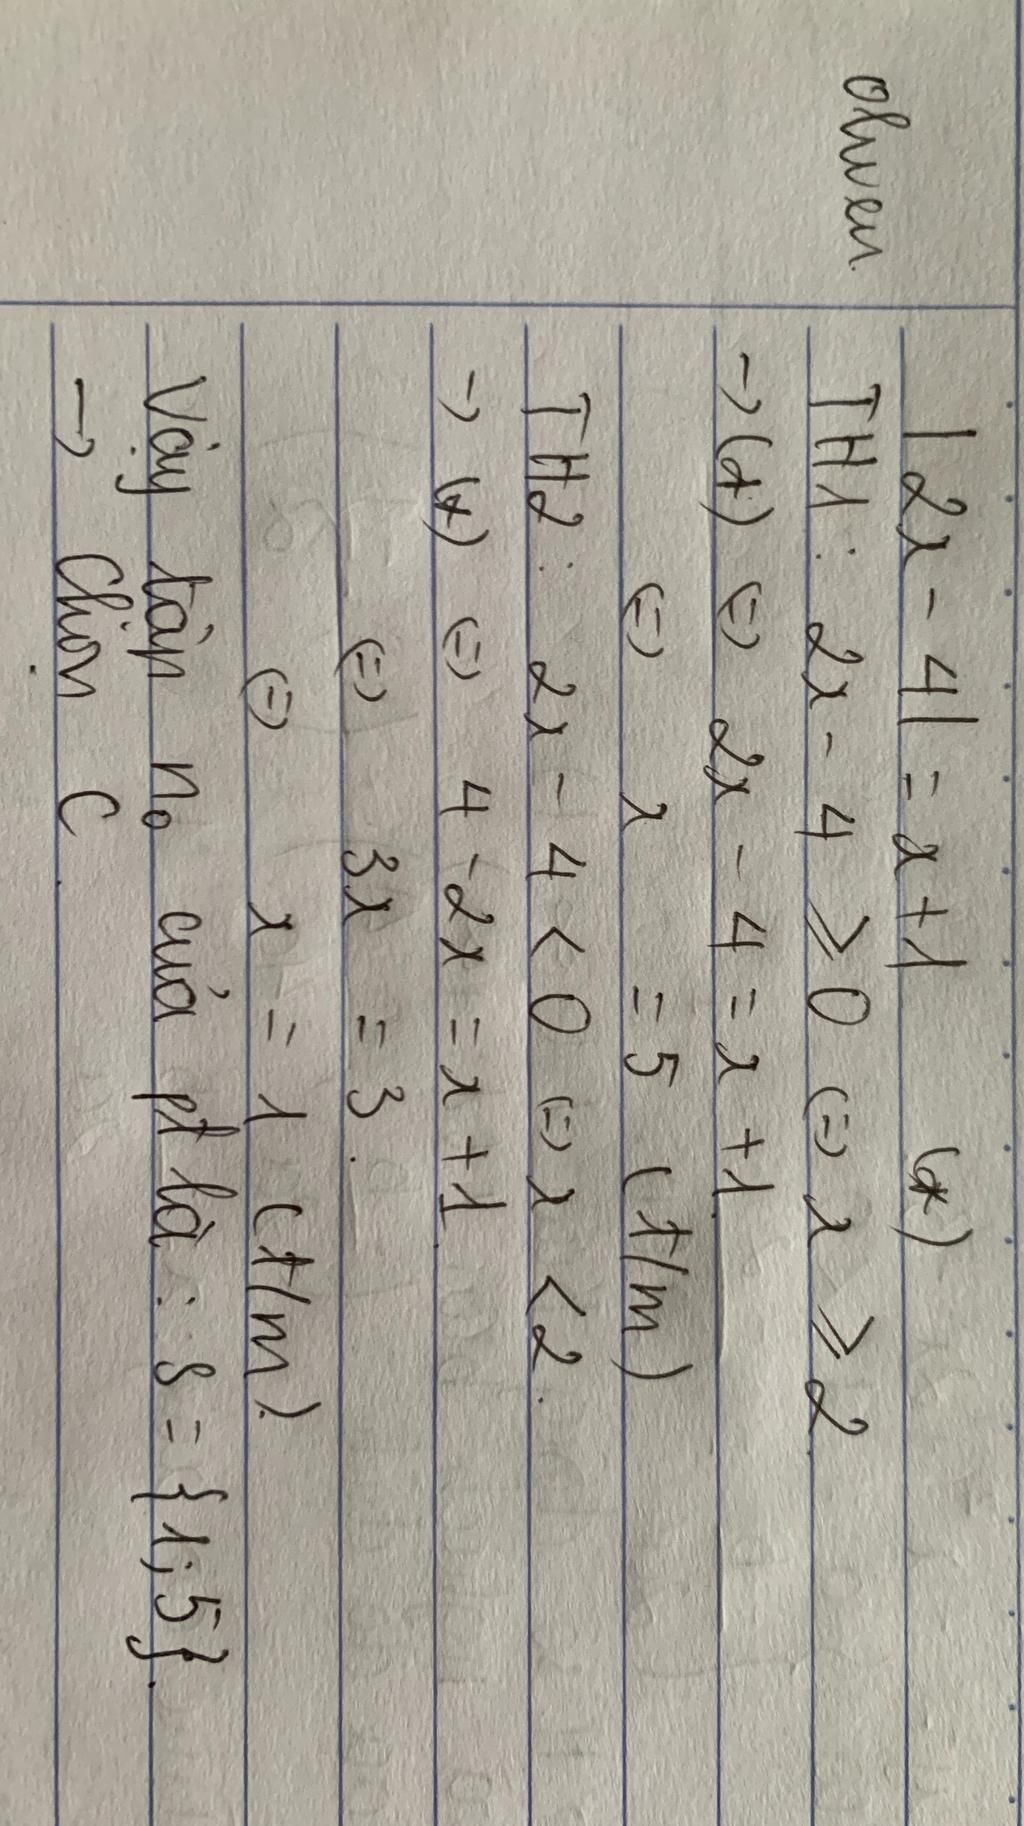 olwen
|2x - 4| = x + 1 (*)
TH1: 2x - 4 ⩾ 0 (=) x ⩾ 2
→ (*) (=) 2x - 4 = x + 1
(=) x = 5 (t/m)
TH2: 2x - 4 < 0 (=) x < 2.
→ (*) (=) 4 - 2x = x + 1
(=) 3x = 3.
(=) x = 1 (t/m).
Vậy tập no của pt là: S = {1; 5}.
→ Chọn C